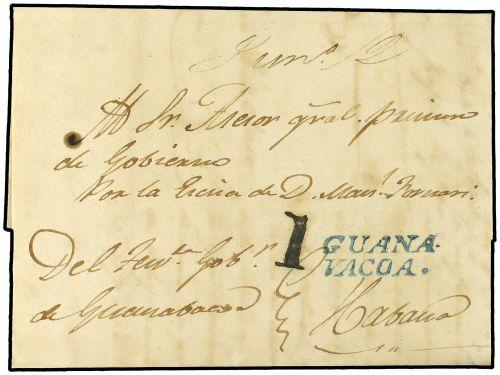 Al Sr. Asesor gral. primero
de Gobierno
Por la Escría de D. Man.l
Del Tente. Gobr.
de Guanabacoa
1
GUANA-
VACOA.
Habana